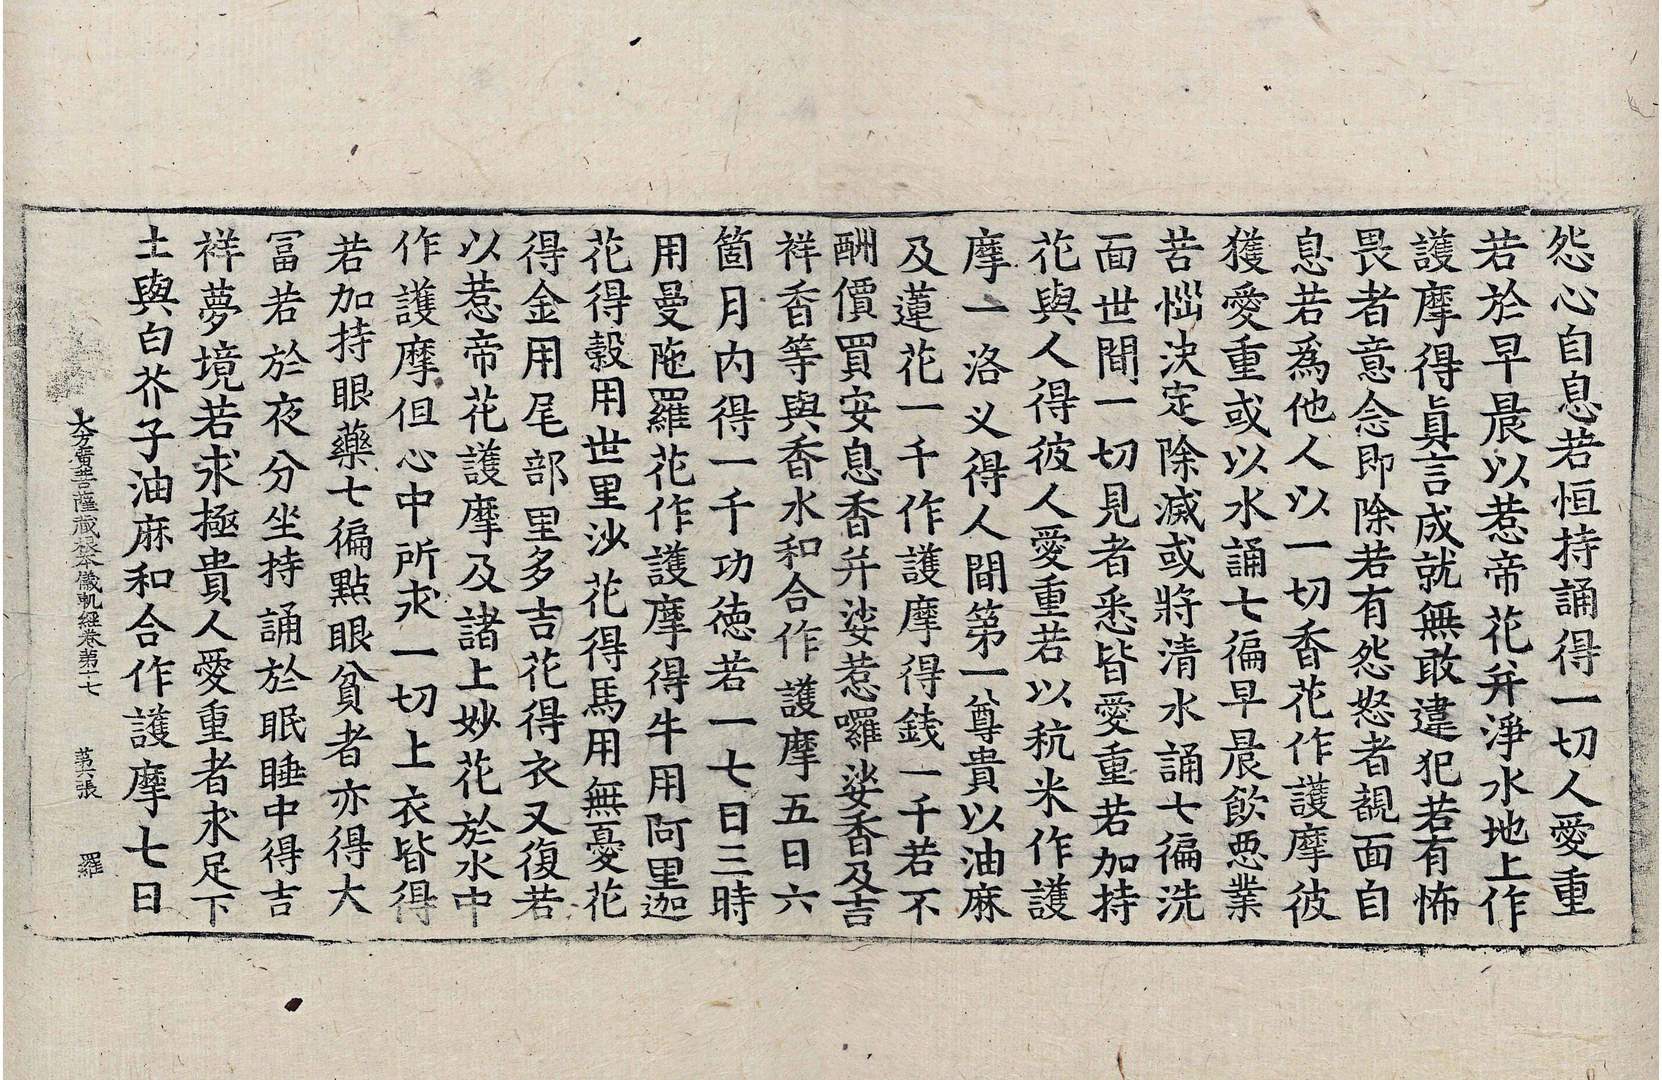 怨心自息若恒持誦得一切人愛重
若於早晨以惹帝花并淨水地上作
護摩得真言成就無敢違犯若有怖
畏者意念即除若有怨怒者覩面自
息若爲他人以一切香花作護摩彼
獲愛重或以水誦七徧早晨飲惡業
苦惱決定除滅或將清水誦七徧洗
面世間一切見者悉皆愛重若加持
花與人得彼人愛重若以秔米作護
摩一洛义得人間第一尊貴以油麻
及蓮花一千作護摩得錢一千若不
酬價買安息香并娑惹囉娑香及吉
祥香等與香水和合作護摩五日六
箇月内得一千功德若一七日三時
用曼陁羅花作護摩得牛用阿里迦
花得穀用世里沙花得馬用無憂花
得金用尾部里多吉花得衣又復若
以惹帝花護摩及諸上妙花於水中
作護摩但心中所求一切上衣皆得
若加持眼藥七徧點眼貧者亦得大
冨若於夜分坐持誦於眠睡中得吉
祥夢境若求極貴人愛重者求足下
土與白芥子油麻和合作護摩七日
大方廣菩薩藏根本儀軌經卷第十七 第六張 羅